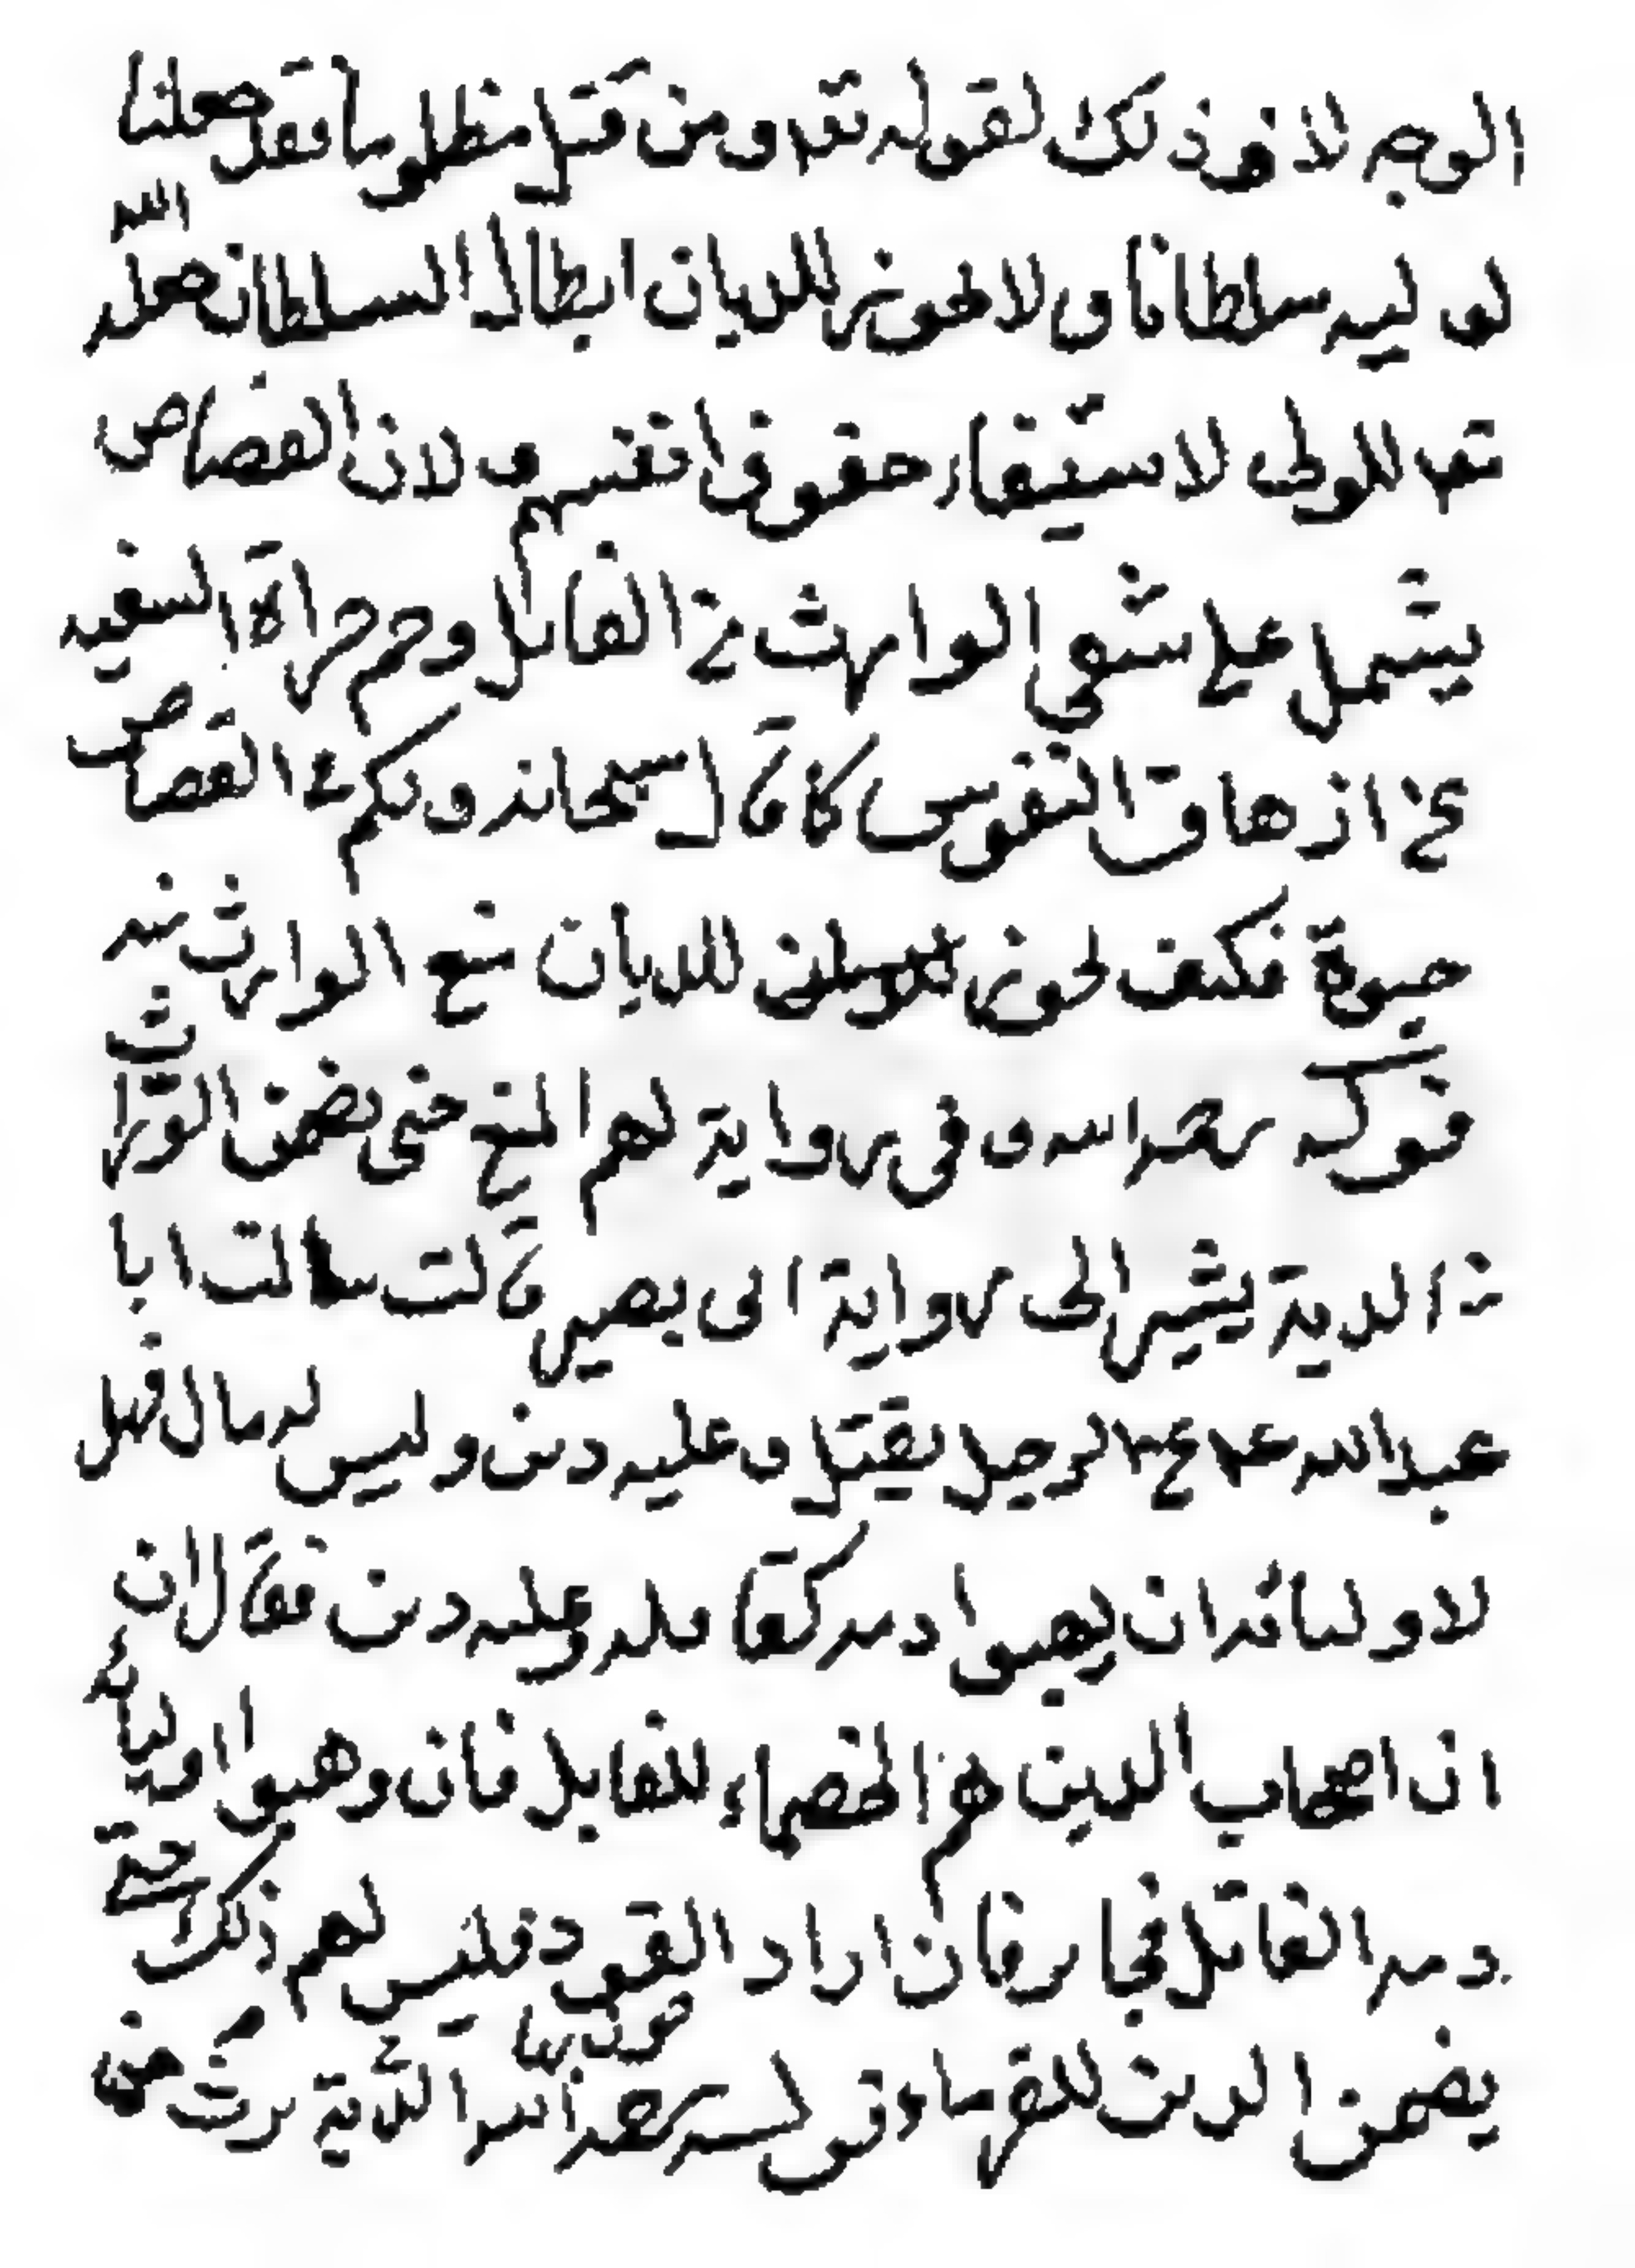 الوجه لاخذ ذلك لقوله تعه ومن قتل مظلوما فقد جعلنا
لوليه سلطانا ولا يجوز للديان ابطال السلطان جعله الله
تعه للولى لاستيفاء حقوق انفسهم ولان القصاص
يشتمل على تشفى الوارث من القاتل وجرأة السفيه
على ازهاق النفوس كما قال سبحانه ولكم فى القصاص
حيوة فكيف يجوز للديان منع الوارث منه
قوله رحمه الله وفى رواية لهم المنع حتى يضمن الوارث
الدية يشير الى رواية ابى بصير قالت سالت ابا
عبد الله ع لرجل يقتل وعليه دين وليس له مال فهل
لاوليائه ان يهبوا دمه لقاتله وعليه دين فقال ان
ان اصحاب الدين هم الخصماء للقاتل فان وهبوا اوليائه
دمه القاتل فجايز فان اراد القود فليس لهم ذلك حتى
يضمن الدين للغرماء قوله رحمه الله الدية يرث من